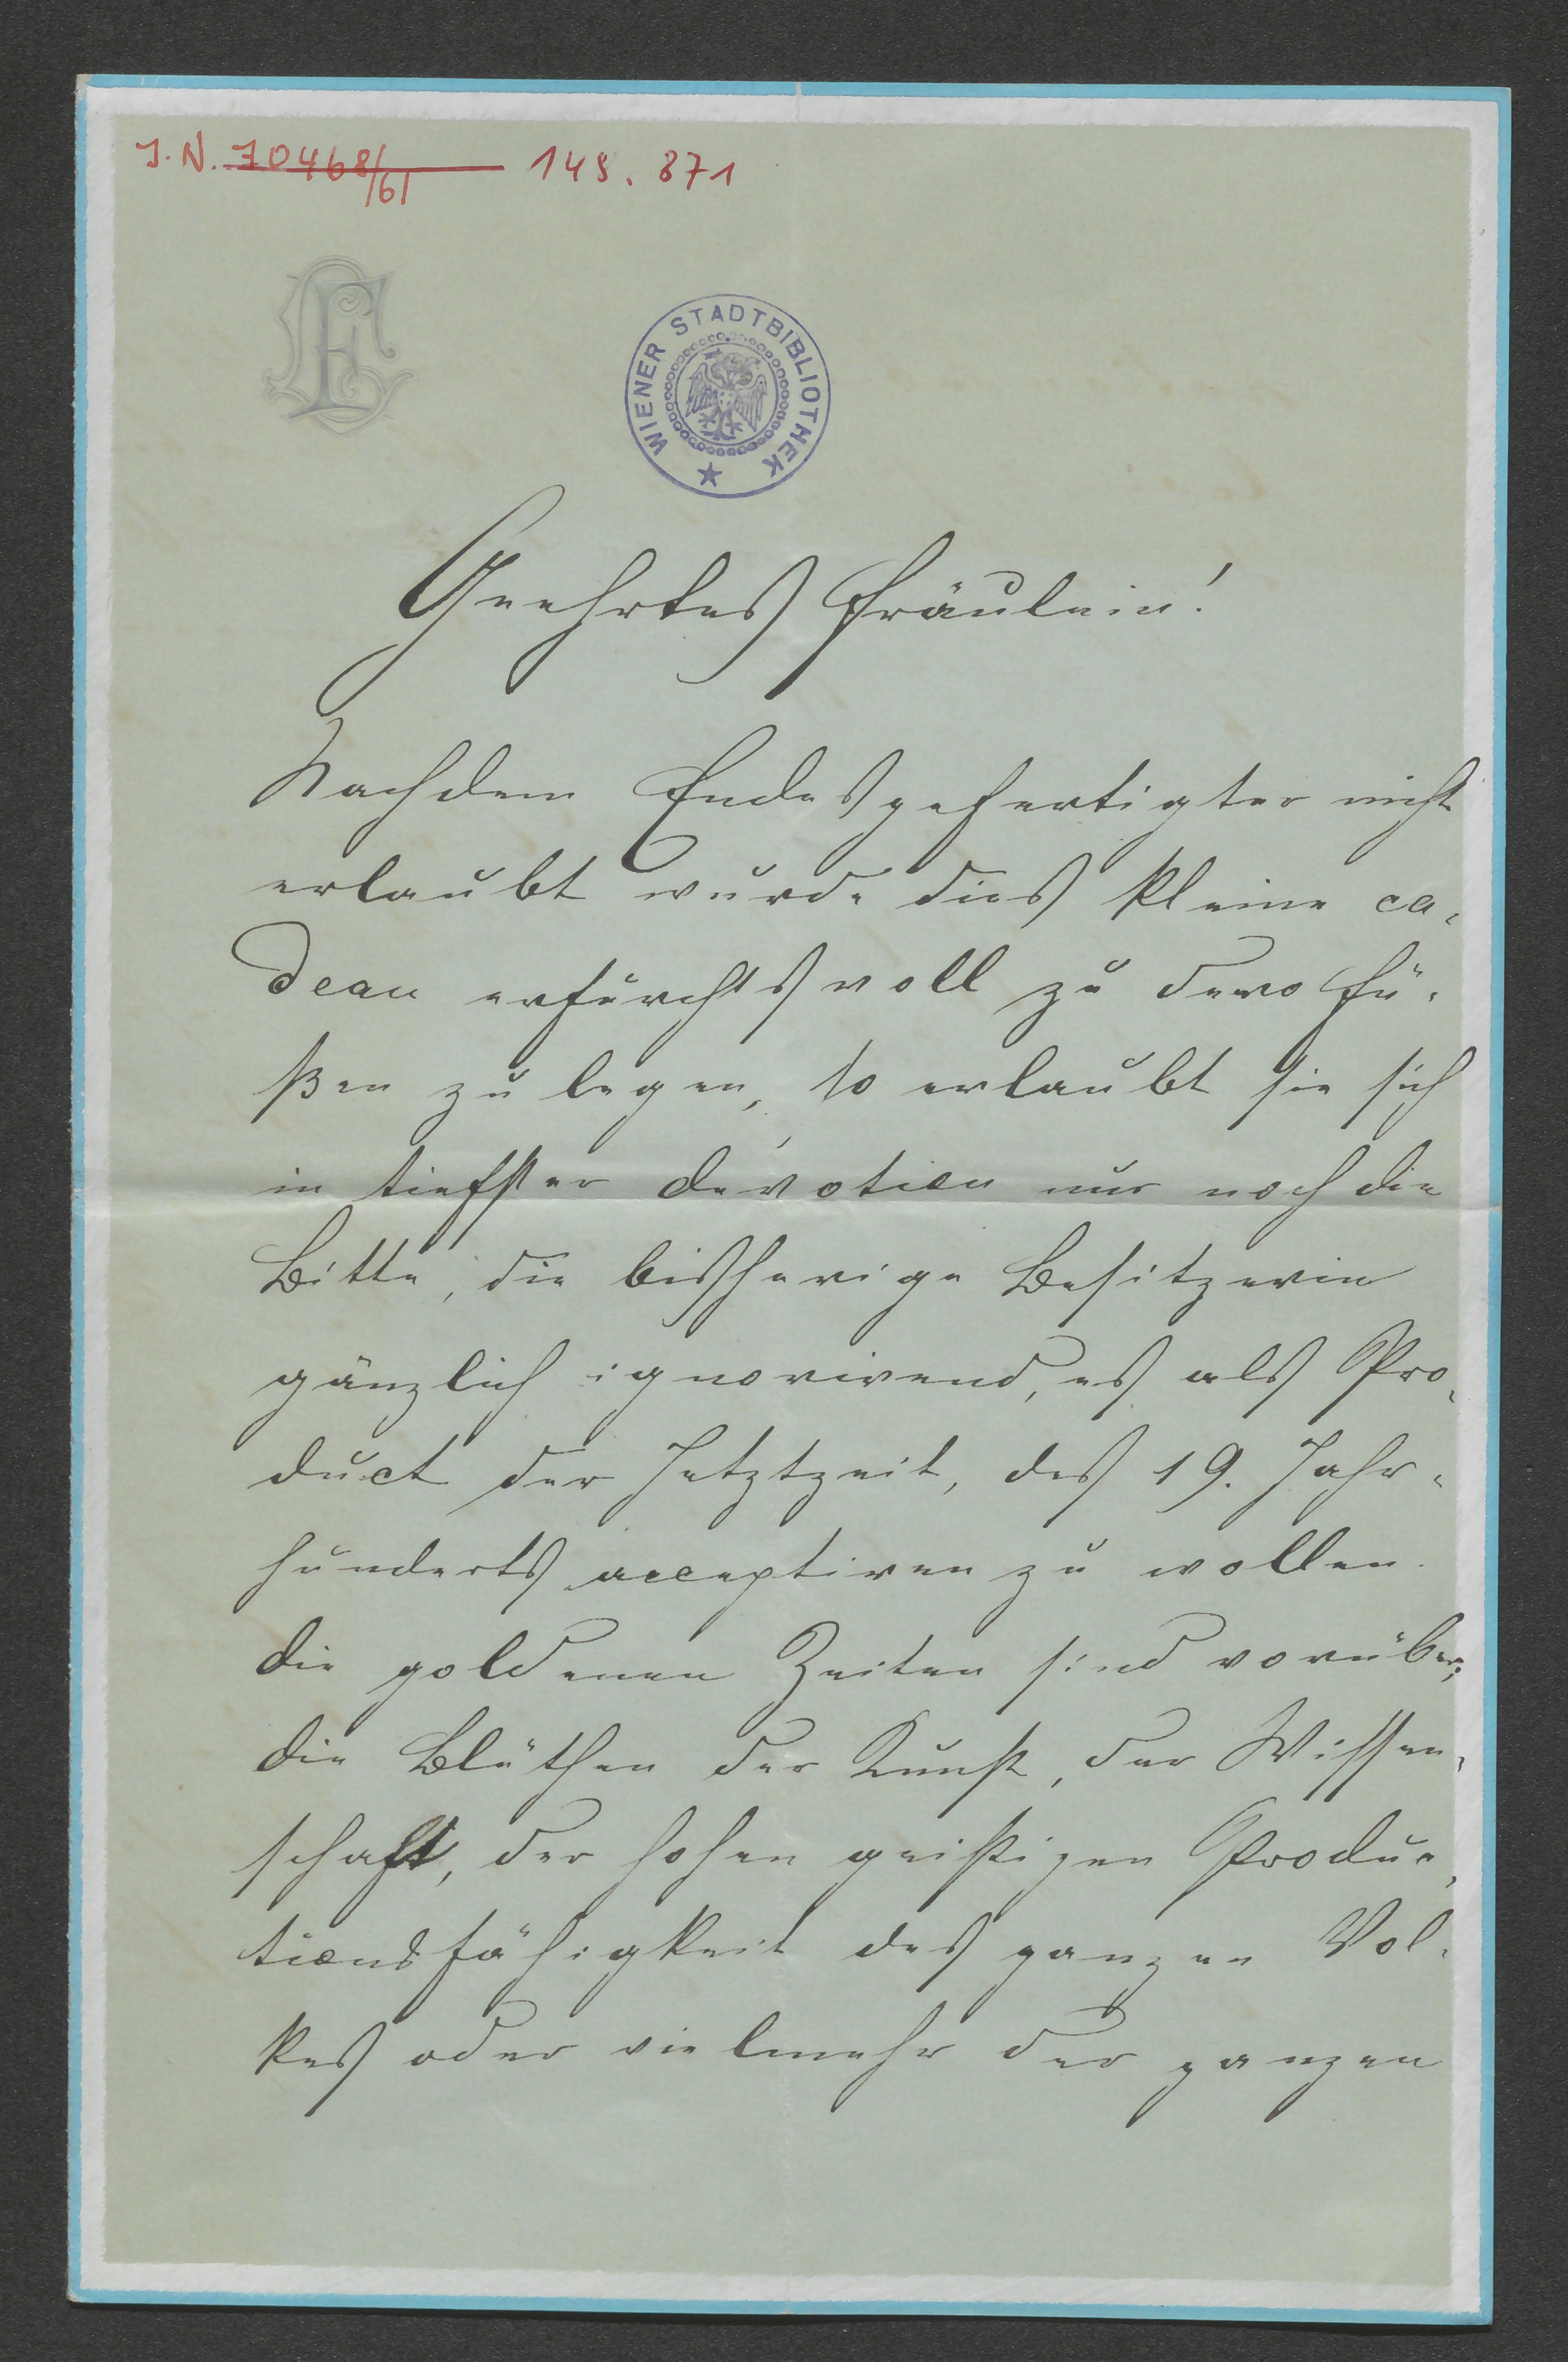 J. N. 70468/61 149.871
LE
WIENER STADTBIBLIOTHEK
Geehrtes Fräulein!
Nachdem Endesgefertigter nicht
erlaubt wurde dies kleine ca-
deau erfurchtsvoll zu dero Fü-
ßen zu legen, so erlaubt sie sich
in tiefster Devotion nur noch die
Bitte, die bisherige Besitzerin
gänzlich ignorirend, es als Pro-
duct der Jetztzeit, des 19. Jahr-
hunderts acceptiren zu wollen.
Die goldenen Zeiten sind vorüber,
die Blüthen der Kunst, der Wissen-
schaft, der hohen geistigen Produc-
tionsfähigkeit des ganzen Vol-
kes oder vielmehr der ganzen